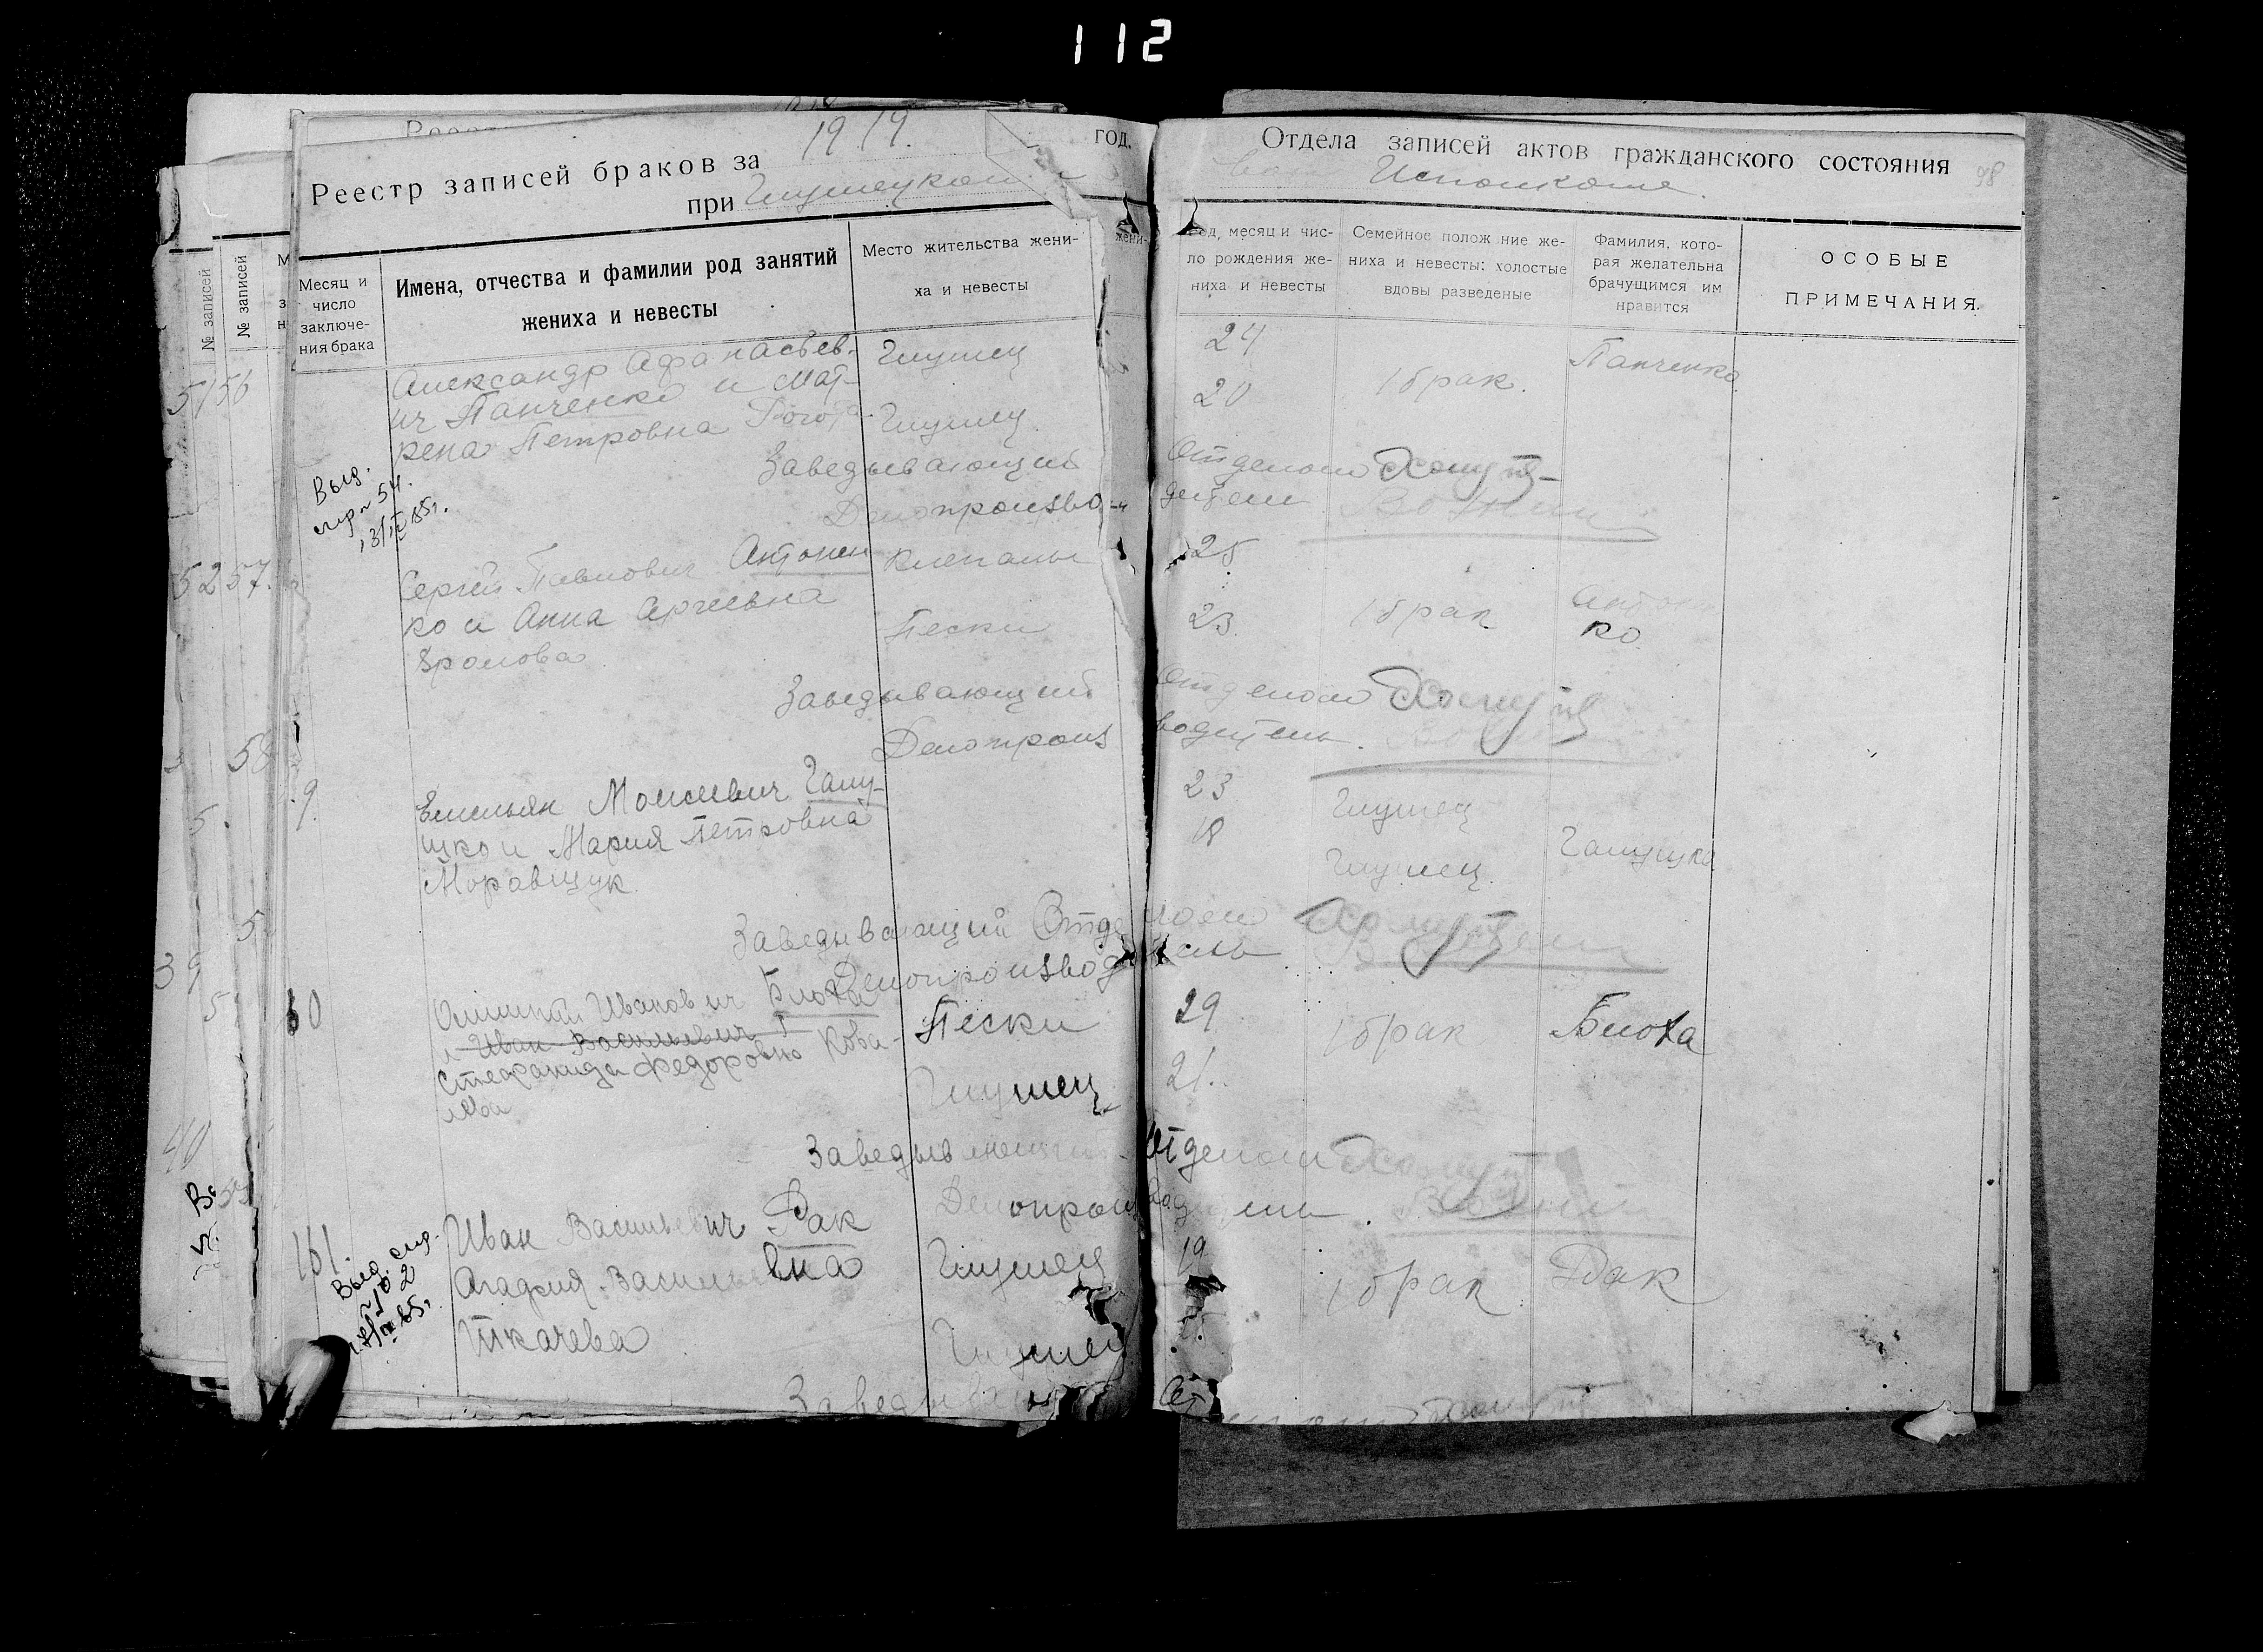 112
Реестр записей браков за 1919. год.
при
Отдела записей актов гражданского состояния
Исполкоме.
98
№ записей
№ записей
Месяц и число заключения брака
Имена, отчества и фамилии род занятий
жениха и невесты
Место жительства жени-
ха и невесты
жени-
Год, месяц и чис-
ло рождения же-
ниха и невесты
Семейное положение же-
ниха и невесты: холостые
вдовы разведеные
Фамилия, кото-
рая желательна
брачущимся им
нравится
ОСОБЫЕ
ПРИМЕЧАНИЯ.
51 56
Александр Афанасьев-
ич Панченко и Мат-
рена Петровна
Глушец
Глушец.
24
20
1 брак.
Панченко
Заведывающий Отделом
Делопроизводитель
Выд.
52 57.
Сергей Павлович Антонен
ко и Анна Сргеевна
Клепалы
Пески
25
23.
1 брак
Антонен
ко.
Заведывающий Отделом
Делопроизводитель.
58
9.
Емельян Моисеевич Галу-
шко и Мария Петровна
Моравщук.
23
18
Глушец
Глушец.
Галушко
Заведывающий Отделом
Делопроизводитель
39
60
Иванович Блоха
и Иван Васильевич
Федоровна Кова-
лева
Пески
Глушец
29
21.
1 брак
Блоха
Заведывающий Отделом
Делопроизводитель.
40
161.
Выд.
Иван Васильевич Рак
Агафия Васильевна
Ткачева
Глушец
Глушец
19
1 брак
Рак
Заведывающий